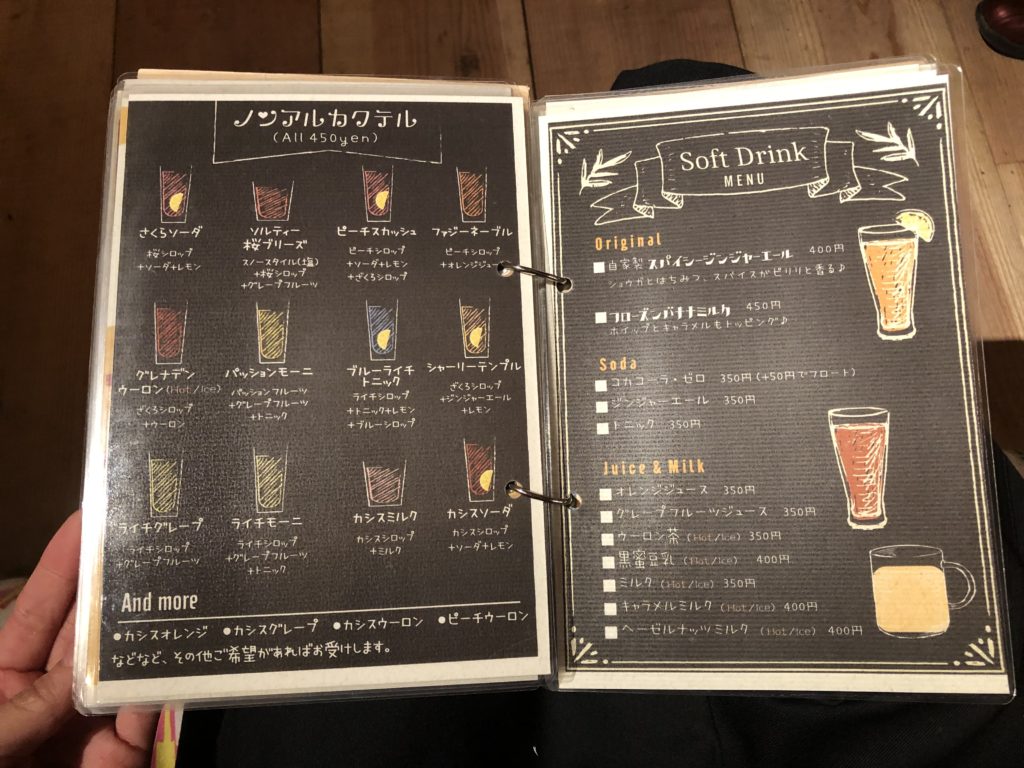 ノンアルカクテル
(All 450yen)
さくらソーダ
桜シロップ
+ソーダ+レモン
ソルティー
桜ブリーズ
スノースタイル(塩)
+桜シロップ
+グレープフルーツ
ピーチスカッシュ
ピーチシロップ
+ソーダ+レモン
+ざくろシロップ
ファジーネーブル
ピーチシロップ
+オレンジジュース
グレナデン
ウーロン(Hot/Ice)
ざくろシロップ
+ウーロン
パッションモーニ
パッションフルーツ
+グレープフルーツ
+トニック
ブルーライチ
トニック
ライチシロップ
+トニック+レモン
+ブルーシロップ
シャーリーテンプル
ざくろシロップ
+ジンジャーエール
+レモン
ライチグレープ
ライチシロップ
+グレープフルーツ
ライチモーニ
ライチシロップ
+グレープフルーツ
+トニック
カシスミルク
カシスシロップ
+ミルク
カシスソーダ
カシスシロップ
+ソーダ+レモン
And more
●カシスオレンジ ●カシスグレープ ●カシスウーロン ●ピーチウーロン
などなど、その他ご希望があればお受けします。
Soft Drink
MENU
Original
自家製 スパイシージンジャーエール 400円
ショウガとはちみつ、スパイスがピリリと香る♪
フローズンバナナミルク 450円
ホイップとキャラメルもトッピング♪
Soda
コカコーラ・ゼロ 350円(+50円でフロート)
ジンジャーエール 350円
トニック 350円
Juice & Milk
オレンジジュース 350円
グレープフルーツジュース 350円
ウーロン茶 (Hot/Ice) 350円
黒蜜豆乳 (Hot/Ice) 400円
ミルク (Hot/Ice) 350円
キャラメルミルク (Hot/Ice) 400円
ヘーゼルナッツミルク (Hot/Ice) 400円